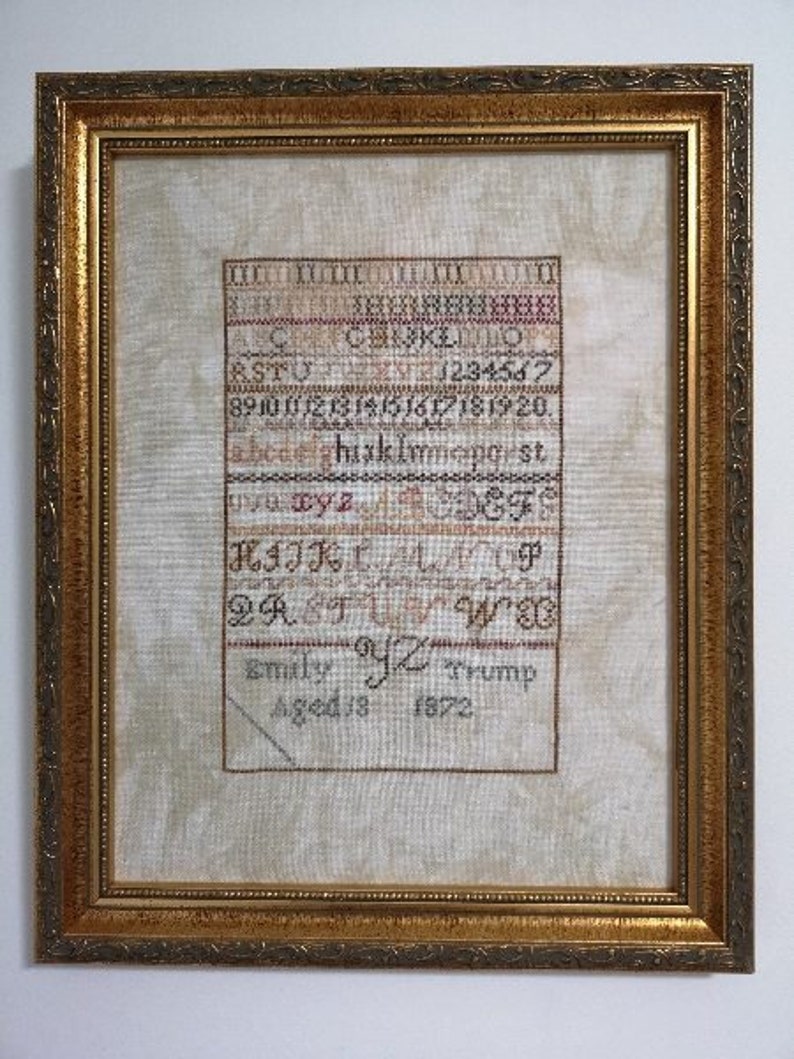 R S T U X Y Z 1 2 3 4 5 6 7
8 9 10 11 12 13 14 15 16 17 18 19 20.
a b c d e f g h i x k l m n o p q r s t
u v u x y z A B C D E F
H I J K L M N O P
Q R S T U V W X
Emily Y Z Trump
Aged 18 1872